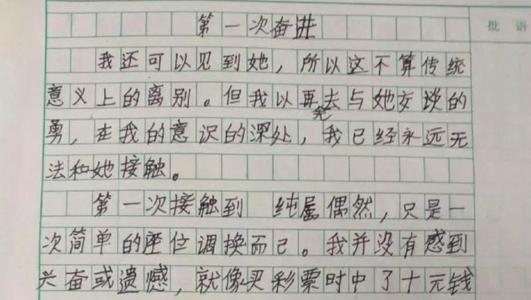 批语
第一次奋进
我还可以见到她，所以这不算传统
意义上的离别。但我以再去与她交谈的
勇，在我的意识的深处，我已经永远无
法和她接触。
第一次接触到 纯属偶然，只是一
次简单的座位调换而已。我并没有感到
兴奋或遗憾，就像买彩票时中了十元钱